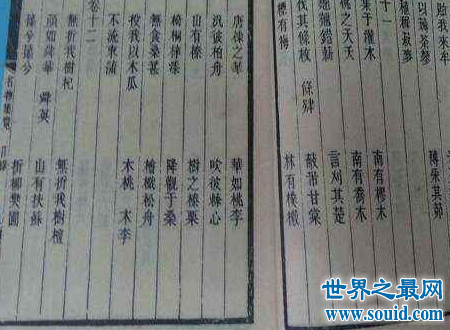 薄采其茆
來牟
十一
集于灌木 南有樛木
桃之夭夭 南有喬木
翹翹錯薪 言刈其楚
伐其條枚 條肄 蔽芾甘棠
摽有梅 林有樸樕
唐棣之華 華如桃李
汎彼柏舟 吹彼棘心
山有榛 樹之榛栗
椅桐梓漆 降觀于桑
無食桑葚 檜楫松舟
投我以木瓜 木桃 木李
不流束蒲
卷十二
無折我樹杞 無折我樹檀
顏如舜華 舜英 山有扶蘇
蘀兮蘀兮 折柳樊圃
世界之最网
www.souid.com